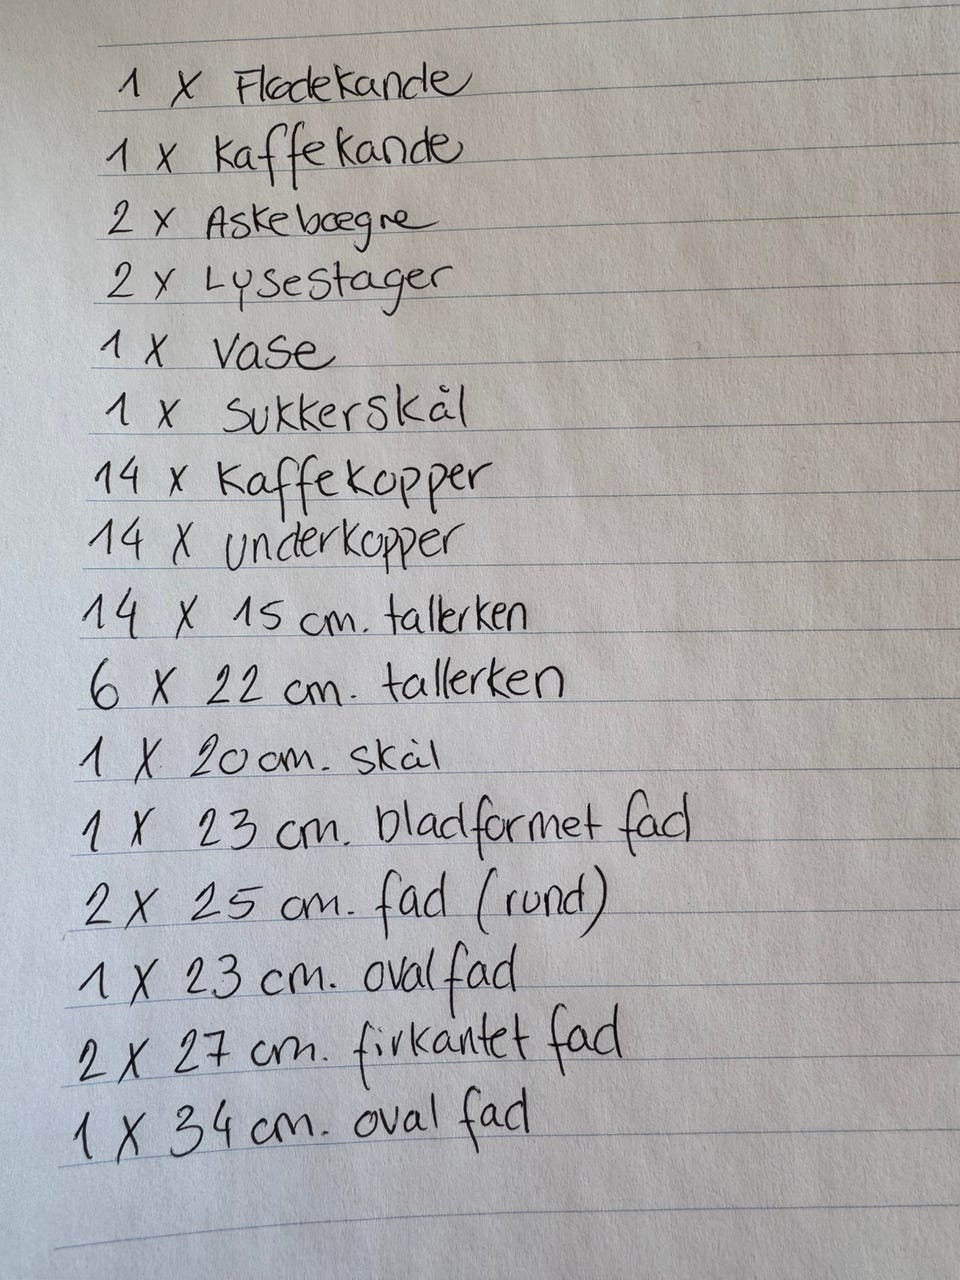 1 x Flødekande
1 x Kaffekande
2 x Askebægre
2 x Lysestager
1 x Vase
1 x Sukkerskål
14 x Kaffekopper
14 x underkopper
14 x 15 cm. tallerken
6 x 22 cm. tallerken
1 x 20 cm. skål
1 x 23 cm. bladformet fad
2 x 25 cm. fad (rund)
1 x 23 cm. oval fad
2 x 27 cm. firkantet fad
1 x 34 cm. oval fad